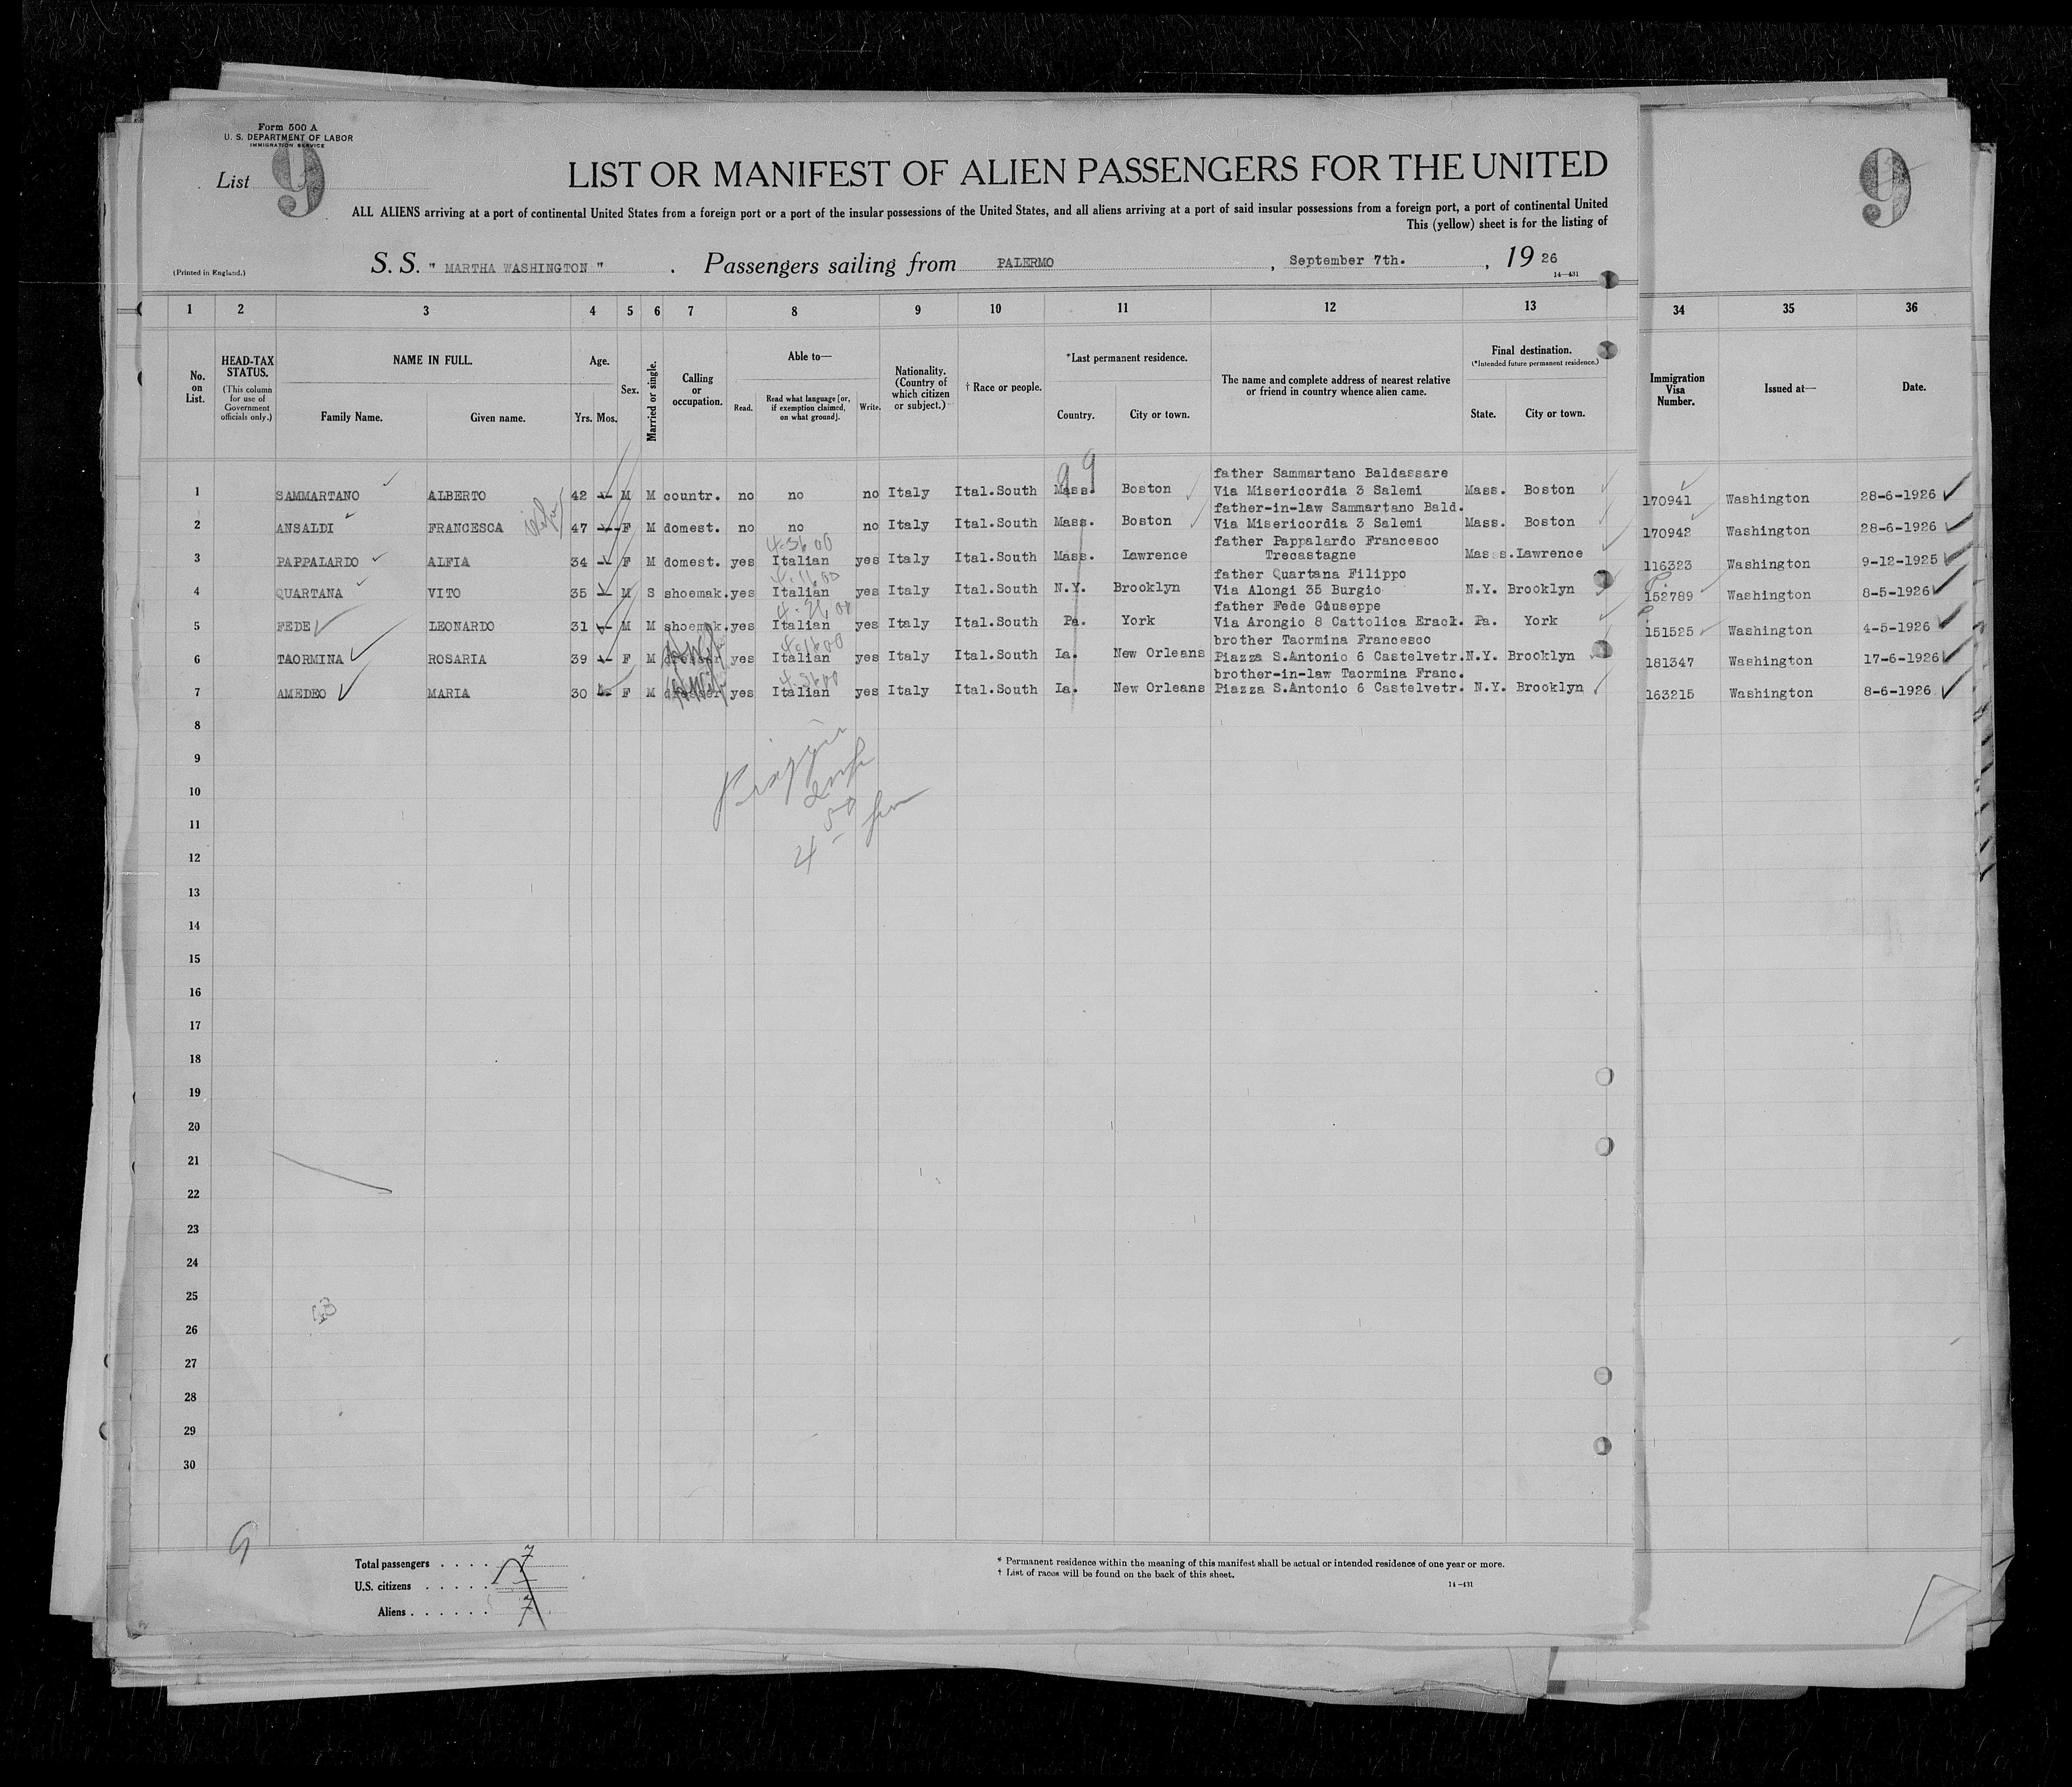 Form 500 A
U. S. DEPARTMENT OF LABOR
IMMIGRATION SERVICE
List 9
9
LIST OR MANIFEST OF ALIEN PASSENGERS FOR THE UNITED
ALL ALIENS arriving at a port of continental United States from a foreign port or a port of the insular possessions of the United States, and all aliens arriving at a port of said insular possessions from a foreign port, a port of continental United
This (yellow) sheet is for the listing of
(Printed in England.)
S. S. " MARTHA WASHINGTON " . Passengers sailing from PALERMO , September 7th. , 19 26
14—431
1 2 3 4 5 6 7 8 9 10 11 12 13 34 35 36
No. on List.
HEAD-TAX STATUS.
(This column for use of Government officials only.)
NAME IN FULL.
Family Name. Given name.
Age.
Yrs. Mos.
Sex.
Married or single.
Calling or occupation.
Able to—
Read. Read what language [or, if exemption claimed, on what ground]. Write.
Nationality. (Country of which citizen or subject.)
† Race or people.
*Last permanent residence.
Country. City or town.
The name and complete address of nearest relative or friend in country whence alien came.
Final destination.
(*Intended future permanent residence.)
State. City or town.
Immigration Visa Number.
Issued at—
Date.
99
father Sammartano Baldassare
1 SAMMARTANO ALBERTO 42 M M countr. no no no Italy Ital.South Mass. Boston Via Misericordia 3 Salemi Mass. Boston 170941 Washington 28-6-1926
father-in-law Sammartano Bald.
2 ANSALDI FRANCESCA wife 47 F M domest. no no no Italy Ital.South Mass. Boston Via Misericordia 3 Salemi Mass. Boston 170942 Washington 28-6-1926
father Pappalardo Francesco
3 PAPPALARDO ALFIA 34 F M domest. yes Italian yes Italy Ital.South Mass. Lawrence Trecastagne Mass. Lawrence 116323 Washington 9-12-1925
father Quartana Filippo
4 QUARTANA VITO 35 M S shoemak. yes Italian yes Italy Ital.South N.Y. Brooklyn Via Alongi 35 Burgio N.Y. Brooklyn 152789 Washington 8-5-1926
father Fede Giuseppe
5 FEDE LEONARDO 31 M M shoemak. yes Italian yes Italy Ital.South Pa. York Via Arongio 8 Cattolica Eracl. Pa. York 151525 Washington 4-5-1926
brother Taormina Francesco
6 TAORMINA ROSARIA 39 F M yes Italian yes Italy Ital.South La. New Orleans Piazza S.Antonio 6 Castelvetr. N.Y. Brooklyn 181347 Washington 17-6-1926
brother-in-law Taormina Franc.
7 AMEDEO MARIA 30 F M yes Italian yes Italy Ital.South La. New Orleans Piazza S.Antonio 6 Castelvetr. N.Y. Brooklyn 163215 Washington 8-6-1926
8
9
10
11
12
13
14
15
16
17
18
19
20
21
22
23
24
25
26
27
28
29
30
9
Total passengers . . . . 7
U.S. citizens . . . . .
Aliens . . . . . . 7
* Permanent residence within the meaning of this manifest shall be actual or intended residence of one year or more.
† List of races will be found on the back of this sheet.
14—431